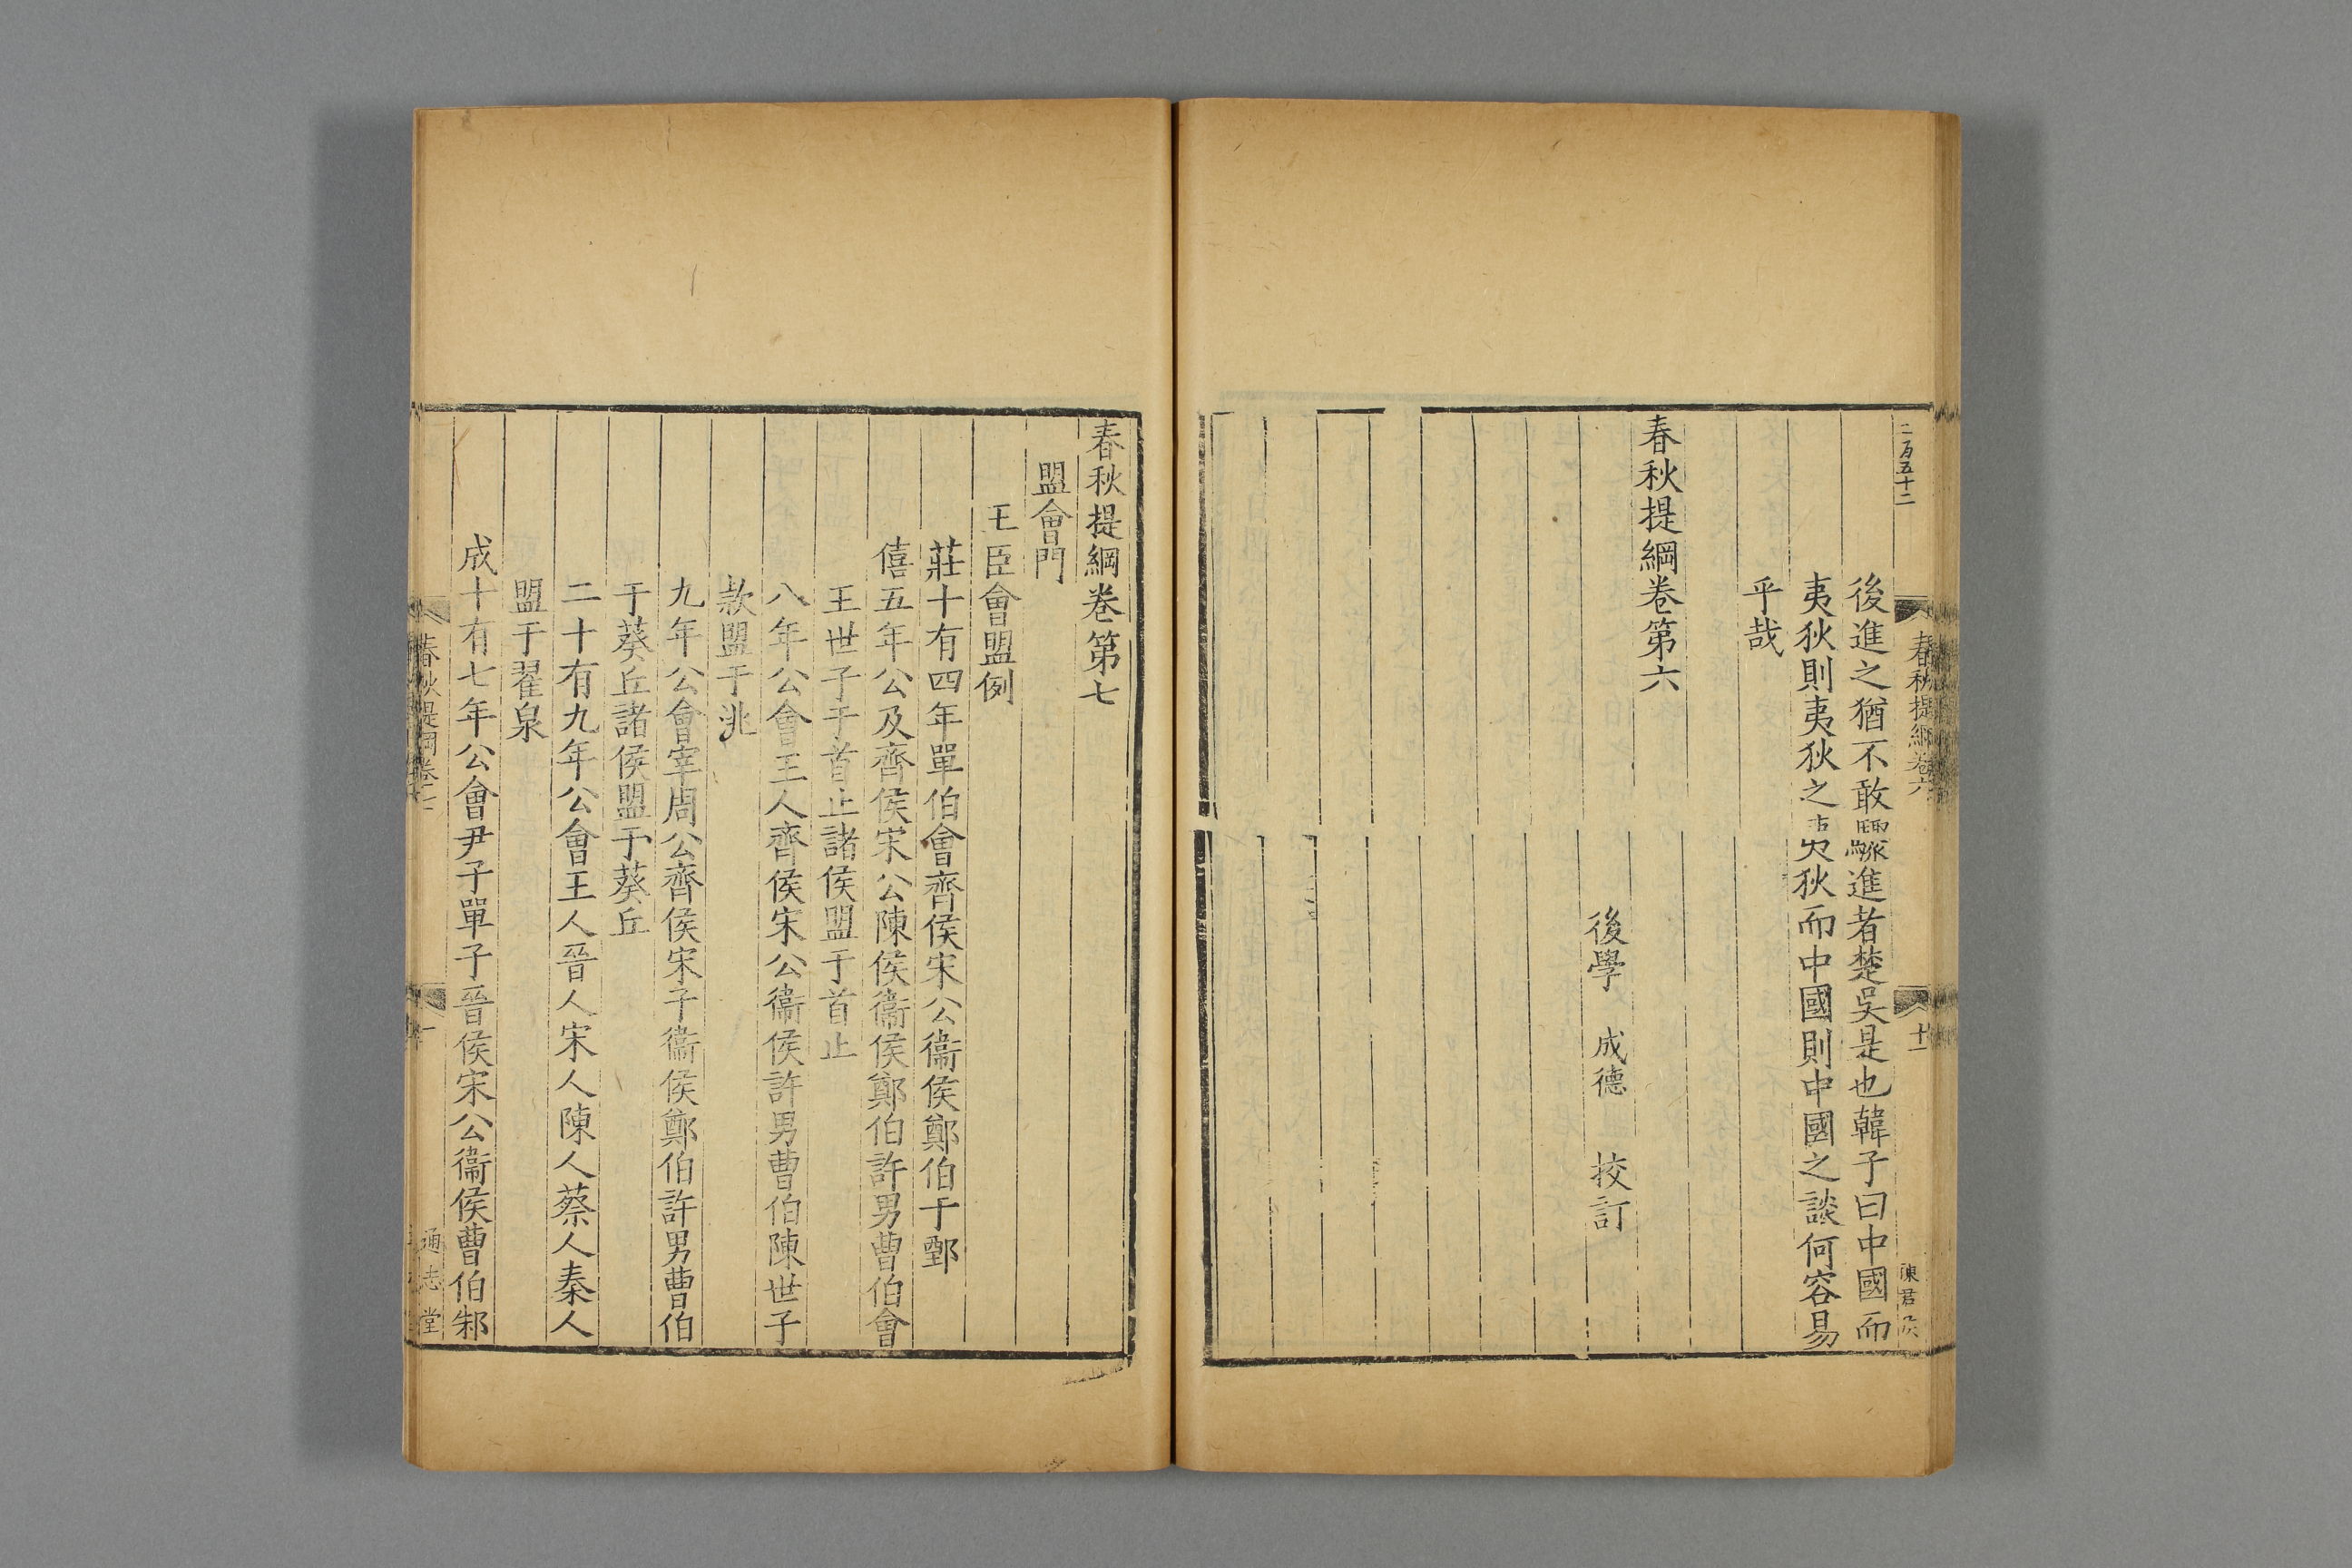 二百五十二
春秋提綱卷六
十一
陳君
後進之猶不敢驟進者楚吳是也韓子曰中國而
夷狄則夷狄之夷狄而中國則中國之談何容易
乎哉
春秋提綱卷第六
後學 成德 挍訂
春秋提綱卷第七
盟會門
王臣會盟例
莊十有四年單伯會齊侯宋公衞侯鄭伯于鄄
僖五年公及齊侯宋公陳侯衞侯鄭伯許男曹伯會
王世子于首止諸侯盟于首止
八年公會王人齊侯宋公衞侯許男曹伯陳世子
款盟于洮
九年公會宰周公齊侯宋子衞侯鄭伯許男曹伯
于葵丘諸侯盟于葵丘
二十有九年公會王人晉人宋人陳人蔡人秦人
盟于翟泉
成十有七年公會尹子單子晉侯宋公衞侯曹伯邾
春秋提綱卷七
一
通志堂